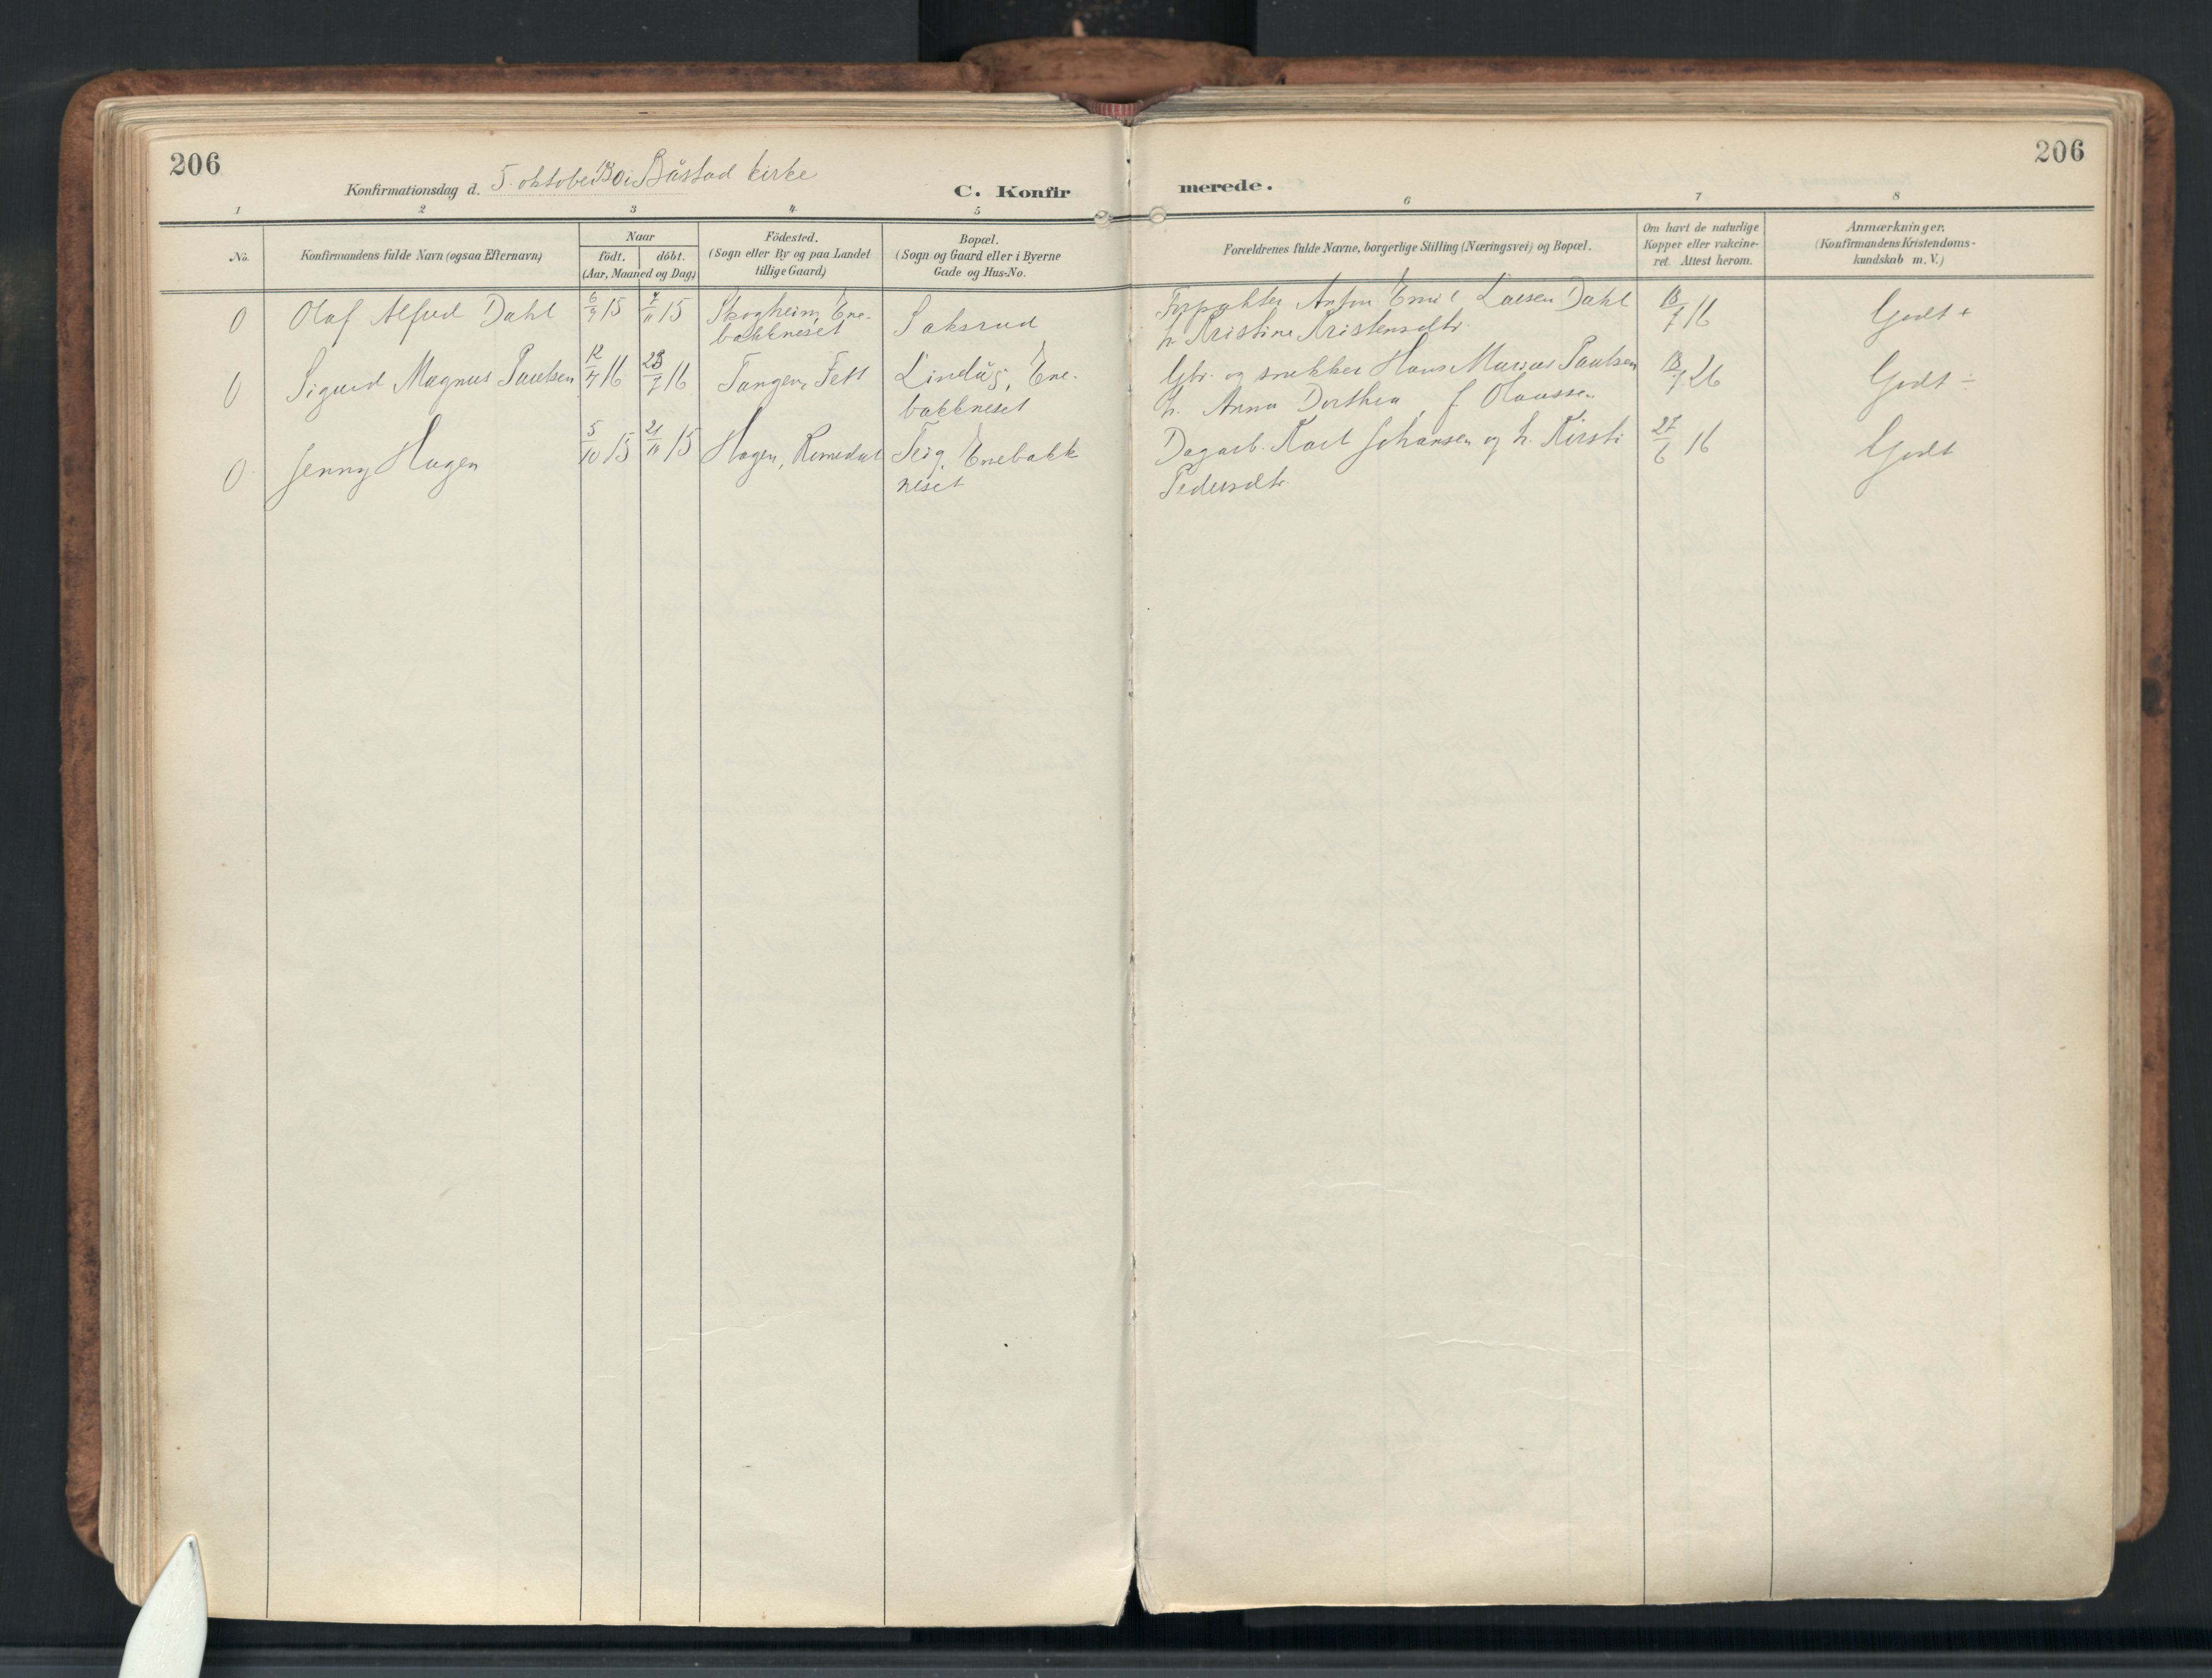 206
206
Konfirmationsdag d. 5. oktober 30 i Båstad kirke
C. Konfirmerede.
1 2 3 4 5 6 7 8
No.
Konfirmandens fulde Navn (ogsaa Efternavn)
Naar
født. døbt.
(Aar, Maaned og Dag)
Födested.
(Sogn eller By og paa Landet
tillige Gaard)
Bopæl.
(Sogn og Gaard eller i Byerne
Gade og Hus-No.
Forældrenes fulde Navne, borgerlige Stilling (Næringsvei) og Bopæl.
Om havt de naturlige
Kopper eller vakcine-
ret. Attest herom.
Anmærkninger.
(Konfirmandens Kristendoms-
kundskab m. V.)
0 Olaf Alfred Dahl 6/9 15 7/11 15 Skogheim, Ene- Saksrud Forpakter Anton Emil Larsen Dahl 18/7 16 Godt +
bakkneset h. Kristine Kristensdtr.
0 Sigurd Magnus Paulsen 12/4 16 23/7 16 Tangen, Fet Lindås, Ene- Gbr. og snekker Hans Marius Paulsen 18/7 26 Godt ÷
bakkneset h. Anna Dorthea f. Olaussen
0 Jenny Hagen 5/10 15 21/11 15 Hagen, Romedal Teig, Enebakk Dagarb. Karl Johansen og h. Kirsti 27/6 16 Godt
neset Pedersdtr.